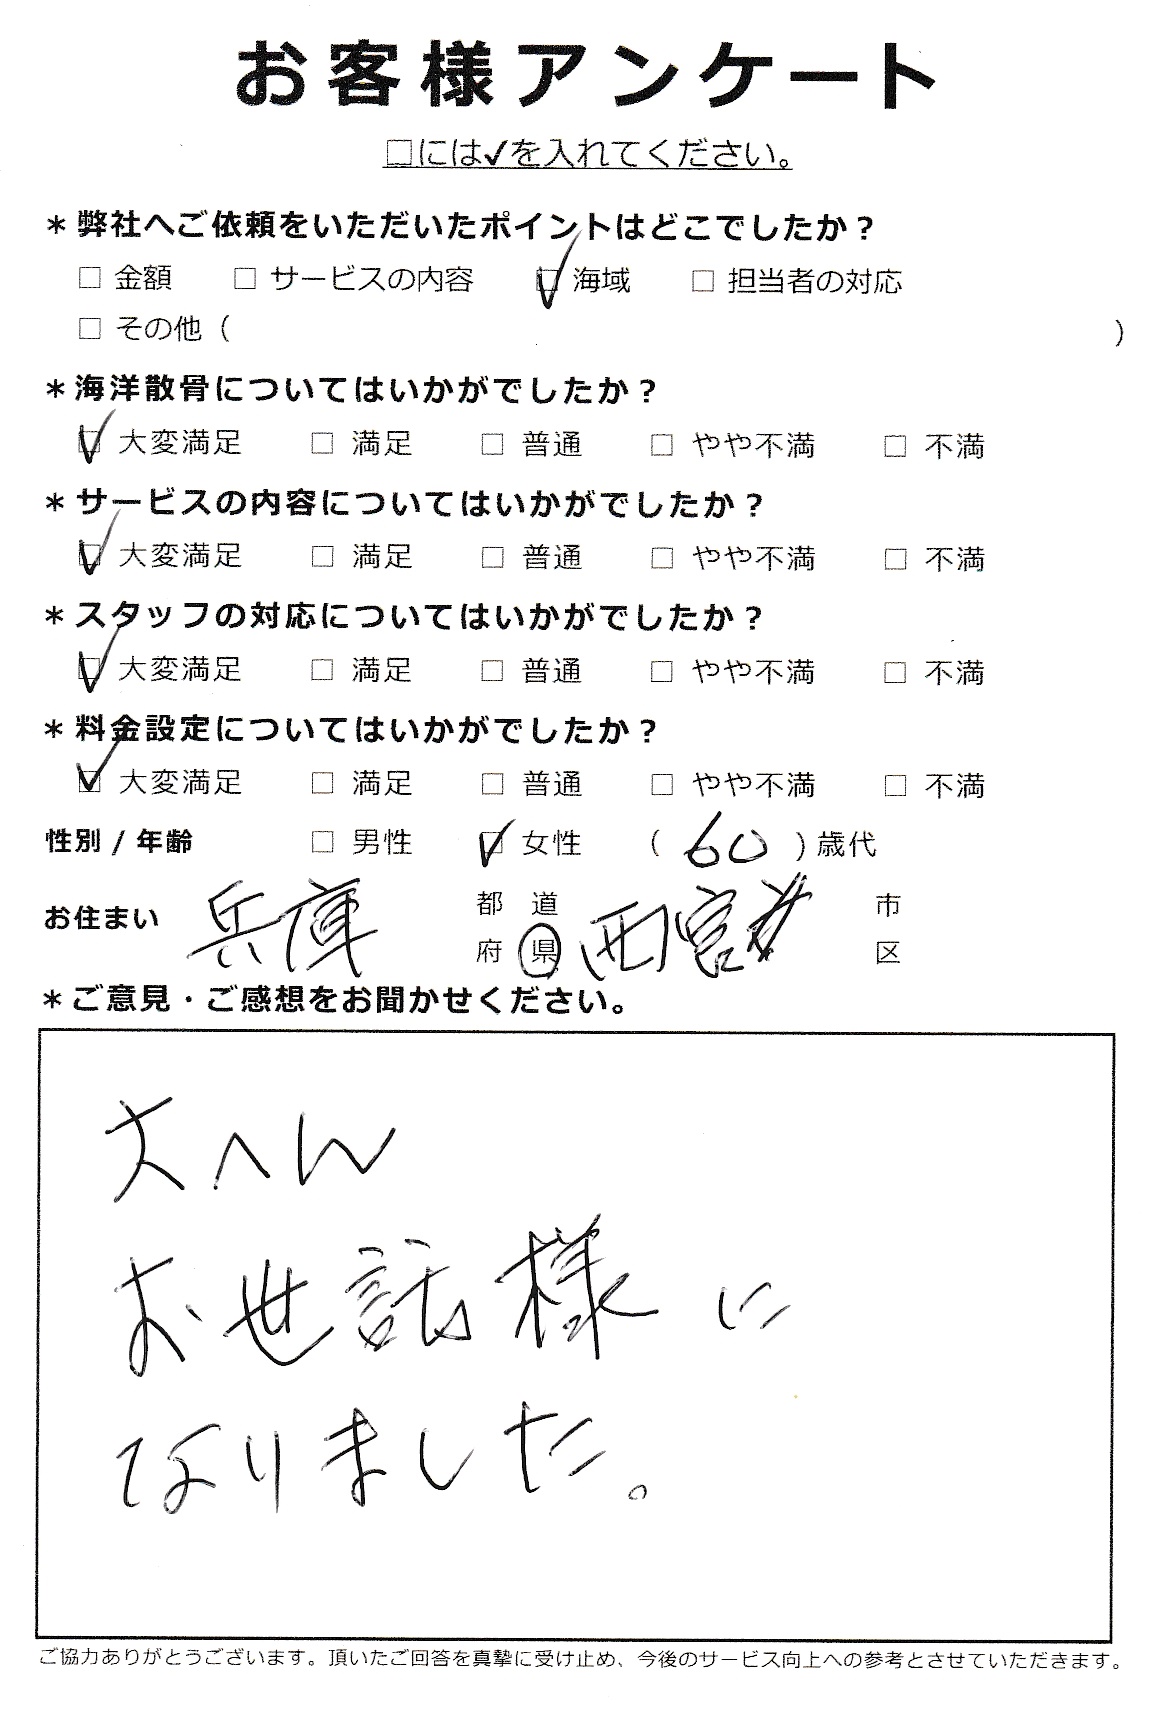 お客様アンケート
□には✓を入れてください。
＊弊社へご依頼をいただいたポイントはどこでしたか？
□ 金額 □ サービスの内容 ☑ 海域 □ 担当者の対応
□ その他（ ）
＊海洋散骨についてはいかがでしたか？
☑ 大変満足 □ 満足 □ 普通 □ やや不満 □ 不満
＊サービスの内容についてはいかがでしたか？
☑ 大変満足 □ 満足 □ 普通 □ やや不満 □ 不満
＊スタッフの対応についてはいかがでしたか？
☑ 大変満足 □ 満足 □ 普通 □ やや不満 □ 不満
＊料金設定についてはいかがでしたか？
☑ 大変満足 □ 満足 □ 普通 □ やや不満 □ 不満
性別 / 年齢 □ 男性 ☑ 女性 （ 60 ）歳代
お住まい 兵庫 都 道 府 県 西宮 市 区
＊ご意見・ご感想をお聞かせください。
大へん
お世話様に
なりました。
ご協力ありがとうございます。頂いたご回答を真摯に受け止め、今後のサービス向上への参考とさせていただきます。